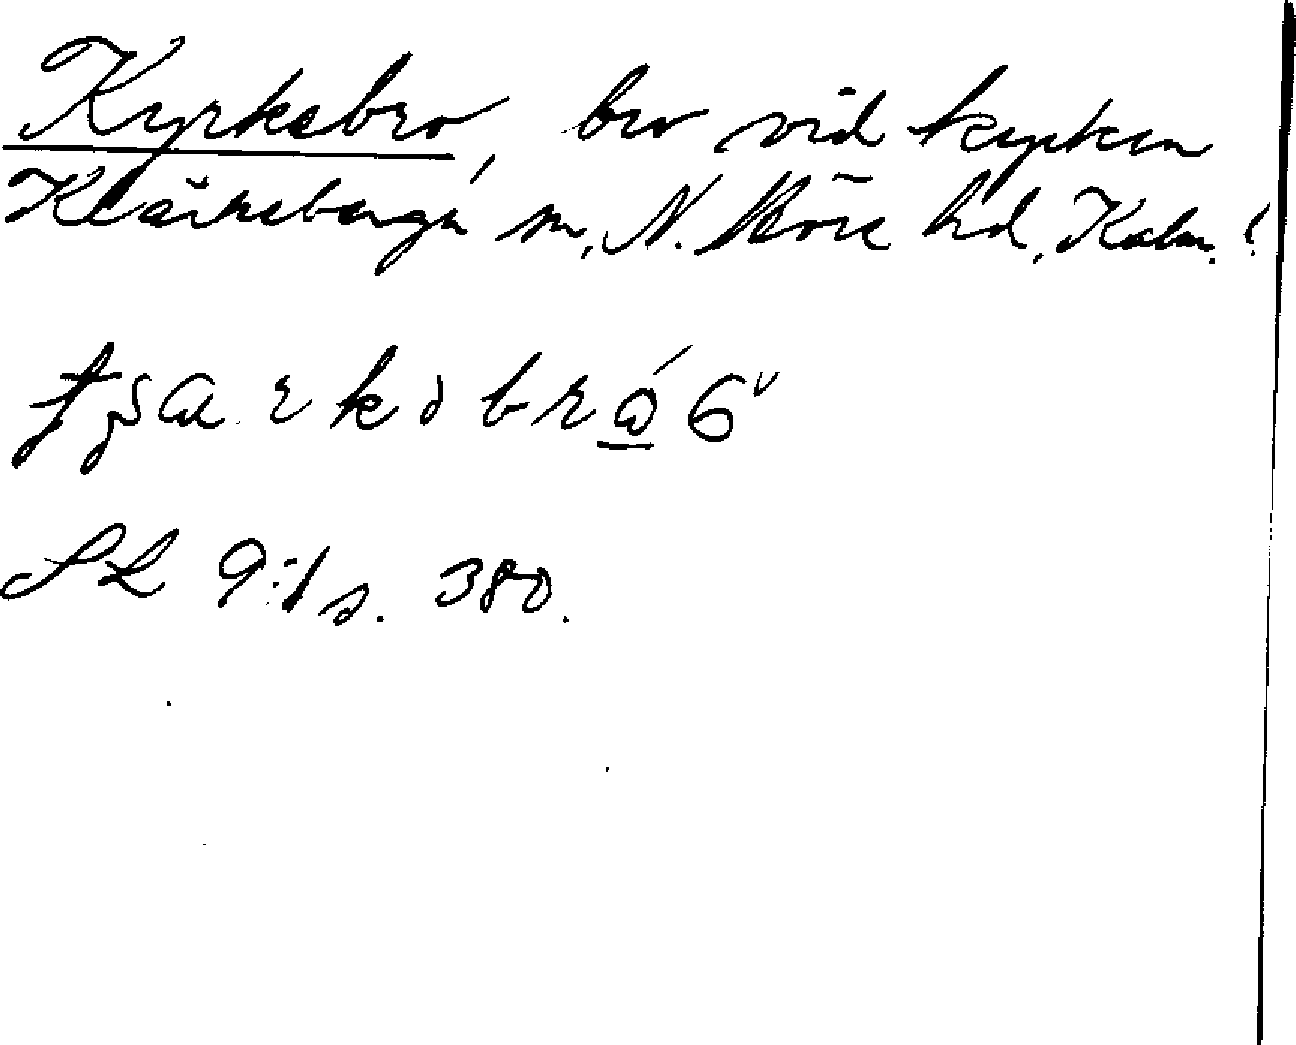 Kyrkebro, bro vid kyrkan
Kläckeberga sn, N. Möre hd, Kalm. l.
krkəbró
SL 9:1 s. 380.